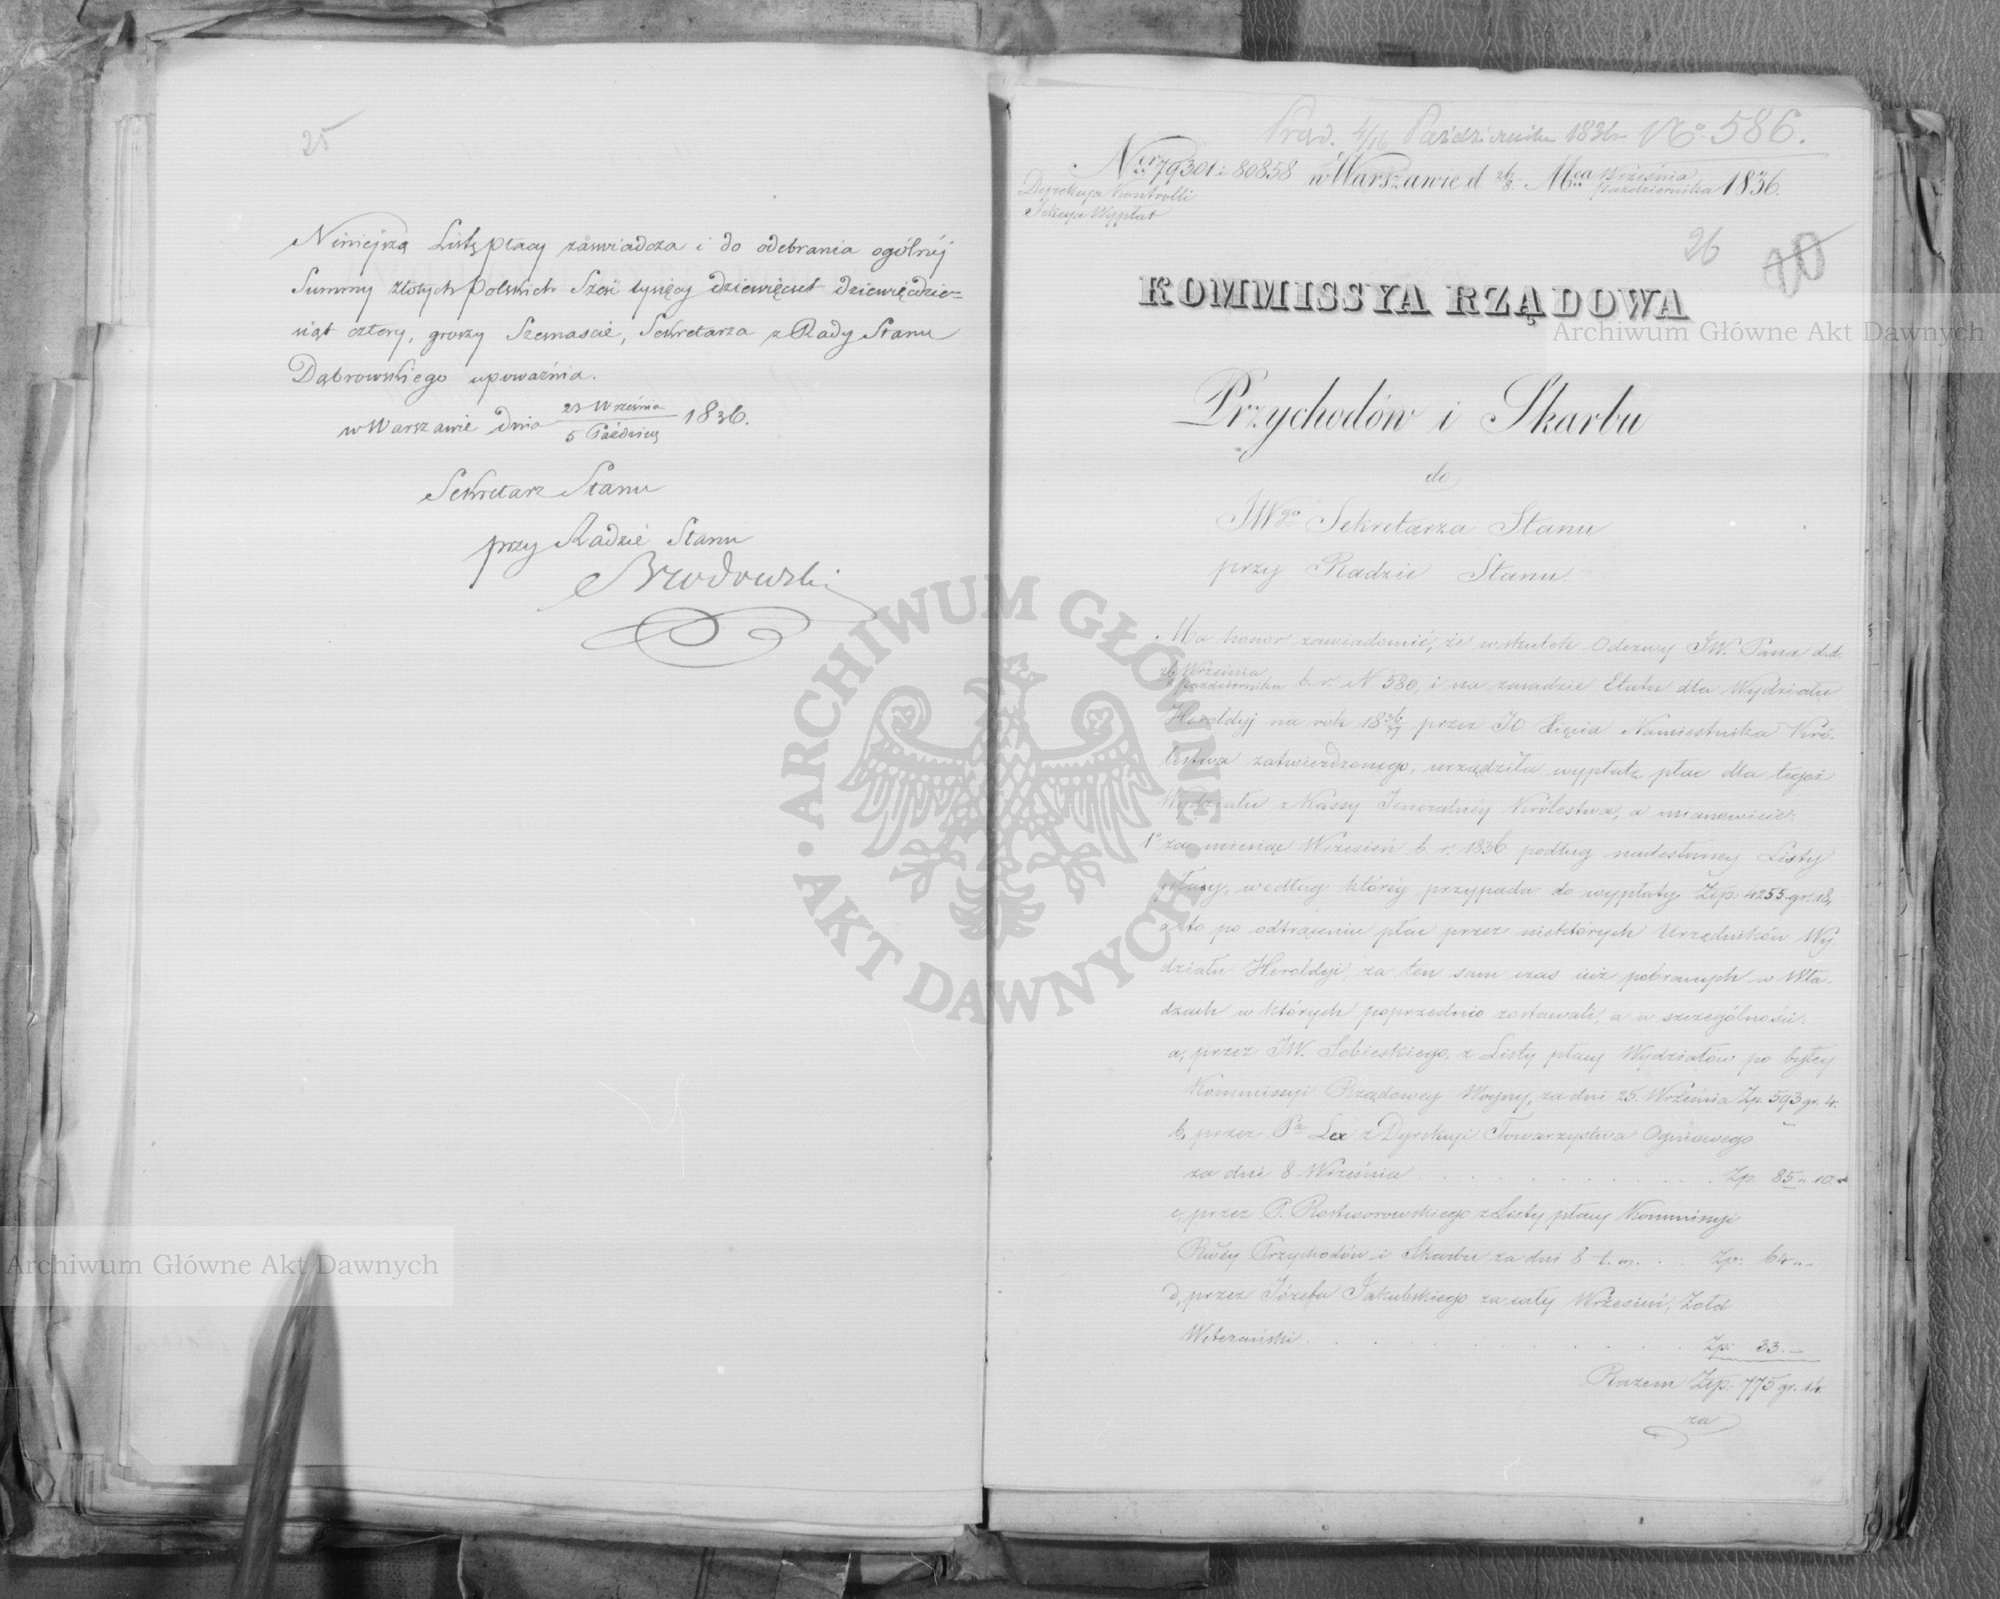 25
Niniejszą Listę płacy zaświadcza i do odebrania ogólnéj
Summy złotych Polskich Sześć tysięcy dziewięćset dziewięćdzie-
siąt cztery, groszy Szesnaście, Sekretarza z Rady Stanu
Dąbrowskiego upoważnia.
w Warszawie dnia 23 Września / 5 Paździer. 1836.
Sekretarz Stanu
przy Radzie Stanu
Brodowski
Prąd. 4/16 Październiku 1836 r No 586.
Ner 79301 i 80858 w Warszawie d 26/8. Mca Września / Października 1836.
Dyrekcya Kontrolli
Sekcya Wypłat
26
KOMMISSYA RZĄDOWA
Przychodów i Skarbu
do
JWgo Sekretarza Stanu
przy Radzie Stanu
Ma honor zawiadomić, że w skutek Odezwy JW. Pana d.d.
26 Września / 8 Października b. r. N 580, i na zasadzie Etatu dla Wydziału
Heroldyj na rok 1836/37 przez JO Xięcia Namiestnika Kró-
lestwa zatwierdzonego, urządziła wypłatę płac dla tegoż
Wydziału z Kassy Jeneralney Królestwa, a mianowicie:
1o za miesiąc Wrzesień b. r. 1836 podług nadesłaney Listy
płacy, według któréy przypada do wypłaty Złp: 4255 gr: 18,
a to po odtrąceniu płac przez niektórych Urzędników Wy-
działu Heroldyi, za ten sam czas już pobranych w Wła-
dzach w których poprzednio zostawali, a w szczególności:
a, przez JW. Sobieskiego, z Listy płacy Wydziałów po byłey
Kommissyi Rządowey Woyny, za dni 25. Września Zp. 593 gr. 4.
b, przez Pa Lex z Dyrekcyi Towarzystwa Ogniowego
za dni 8 Września . . . . . Zp. 85 " 10. "
c, przez P. Rostworowskiego z Listy płacy Kommissyi
Rwéy Przychodów i Skarbu za dni 8 t. m. . . Zp: 64 " -
d, przez Józefa Jakubskiego za cały Wrzesień, Żołd
Weterański . . . . . Zp: 33. -
Razem Złp: 775 gr. 14.
za
Archiwum Główne Akt Dawnych
Archiwum Główne Akt Dawnych
ARCHIWUM GŁÓWNE · AKT DAWNYCH ·